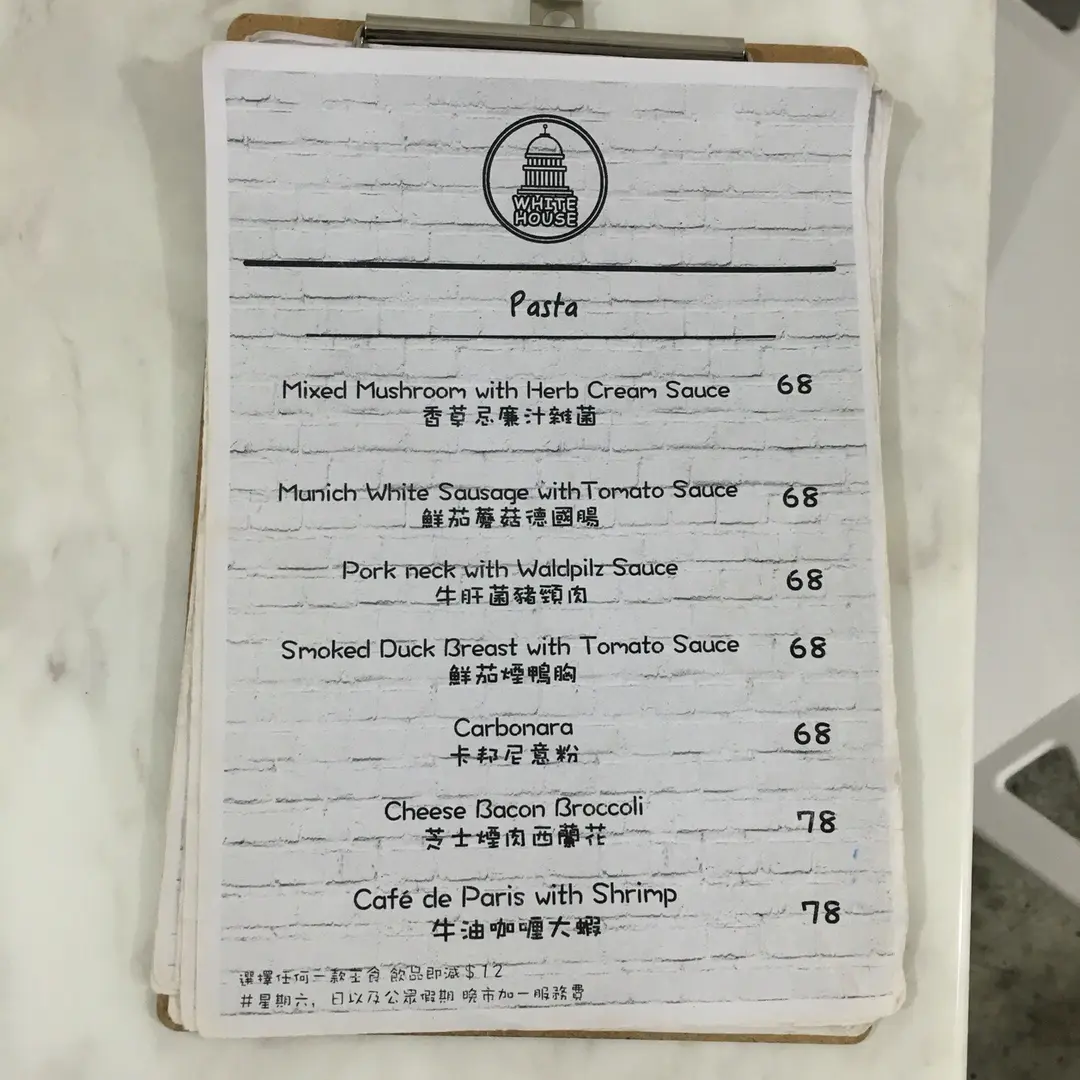 WHITE
HOUSE
Pasta
Mixed Mushroom with Herb Cream Sauce 68
香草忌廉汁雜菌
Munich White Sausage withTomato Sauce 68
鮮茄蘑菇德國腸
Pork neck with Waldpilz Sauce 68
牛肝菌豬頸肉
Smoked Duck Breast with Tomato Sauce 68
鮮茄煙鴨胸
Carbonara 68
卡邦尼意粉
Cheese Bacon Broccoli 78
芝士煙肉西蘭花
Café de Paris with Shrimp 78
牛油咖喱大蝦
選擇任何一款主食 飲品即減$12
#星期六, 日以及公眾假期 晚市加一服務費